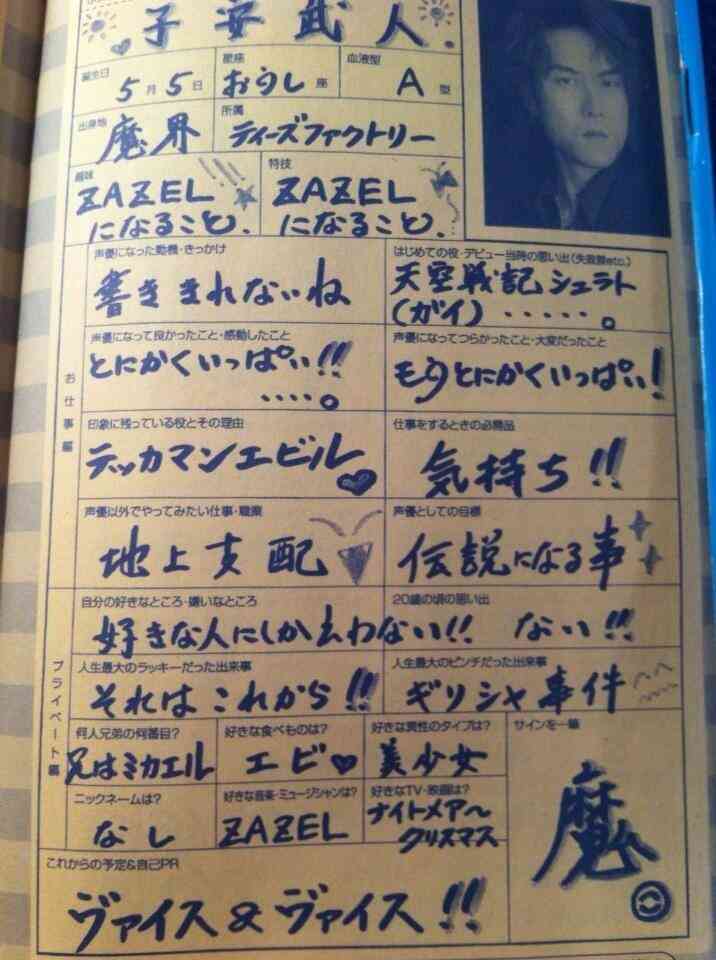 子安武人
誕生日 5月5日
星座 おうし座
血液型 A型
出身地 魔界
所属 ティーズファクトリー
趣味 ZAZELになること。
特技 ZAZELになること.
お仕事編
声優になった動機・きっかけ
書ききれないね
はじめての役・デビュー当時の思い出(失敗談etc.)
天空戦記シュラト
(ガイ)・・・・・。
声優になって良かったこと・感動したこと
とにかくいっぱい!!
・・・・。
声優になってつらかったこと・大変だったこと
もうとにかくいっぱい!
印象に残っている役とその理由
テッカマンエビル
仕事をするときの必需品
気持ち!!
声優以外でやってみたい仕事・職業
地上支配
声優としての目標
伝説になる事
プライベート編
自分の好きなところ・嫌いなところ
好きな人にしか言わない!!
20歳の頃の思い出
ない!!
人生最大のラッキーだった出来事
それはこれから!!
人生最大のピンチだった出来事
ギリシャ事件
何人兄弟の何番目?
兄はミカエル
好きな食べものは?
エビ♥
好きな男性のタイプは?
美少女
サインを一筆
魔
ニックネームは?
なし
好きな音楽・ミュージシャンは?
ZAZEL
好きなTV・映画は?
ナイトメアー
クリスマス
これからの予定&自己PR
ヴァイス&ヴァイス!!